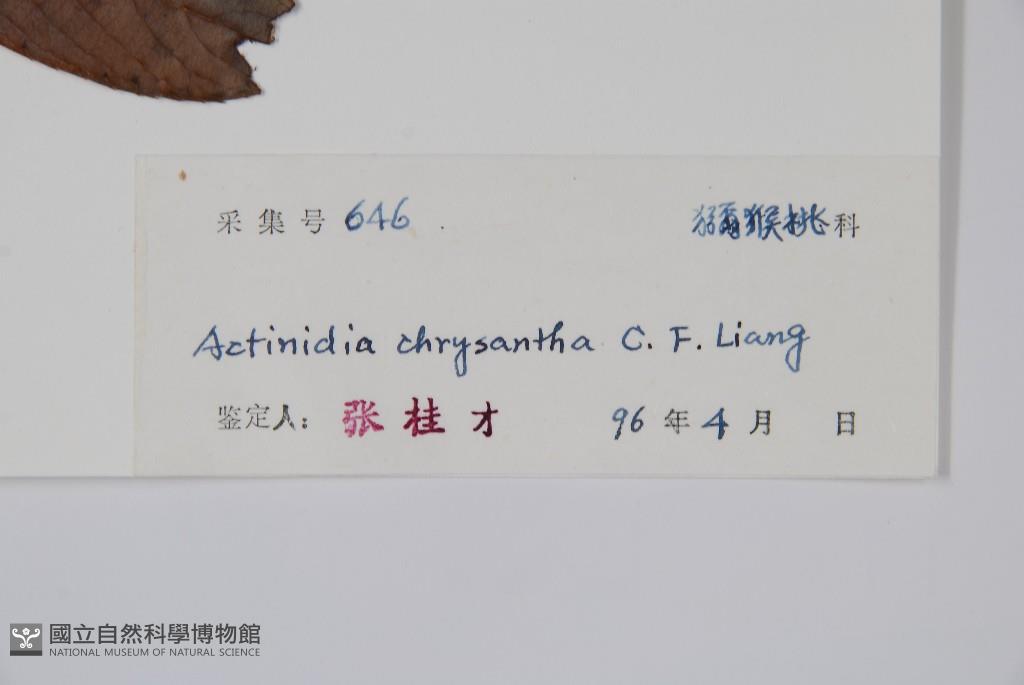 采集号 646 獼猴桃科
Actinidia chrysantha C. F. Liang
鉴定人: 张桂才 96 年 4 月 日
國立自然科學博物館
NATIONAL MUSEUM OF NATURAL SCIENCE